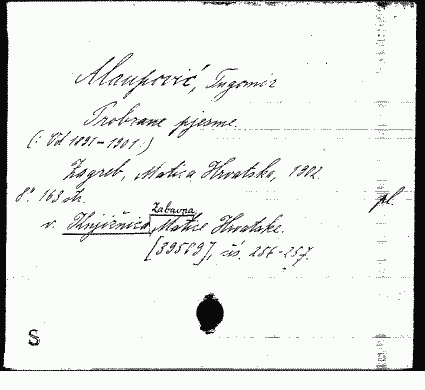 Alaupović, Tugomir
Probrane pjesme.
(: Od 1891-1901 :)
Zagreb, Matica Hrvatska, 1902.
8° 163 str. pl.
v. Knjižnica Zabavna Matice Hrvatske.
[39569], sš. 256-257.
S